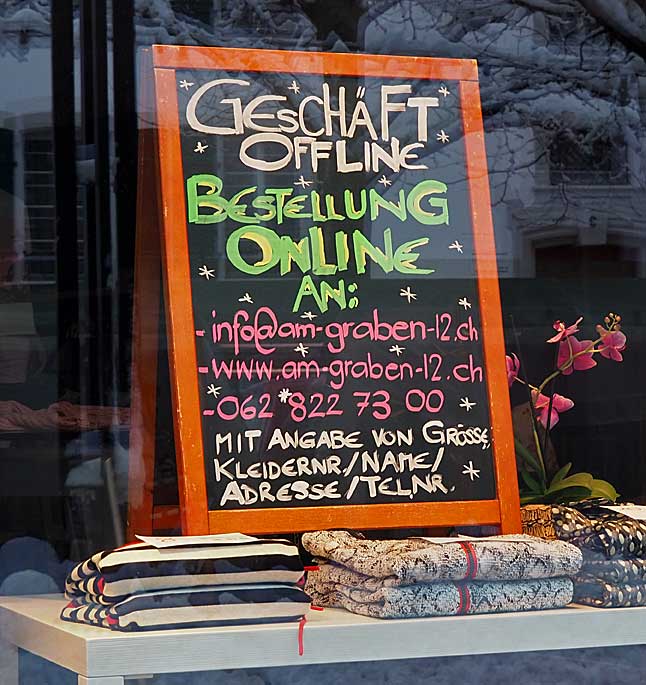 GESCHÄFT
OFFLINE
BESTELLUNG
ONLINE
AN:
- info@am-graben-12.ch
- www.am-graben-12.ch
- 062 822 73 00
MIT ANGABE VON GRÖSSE,
KLEIDERNR./NAME/
ADRESSE/TEL.NR.